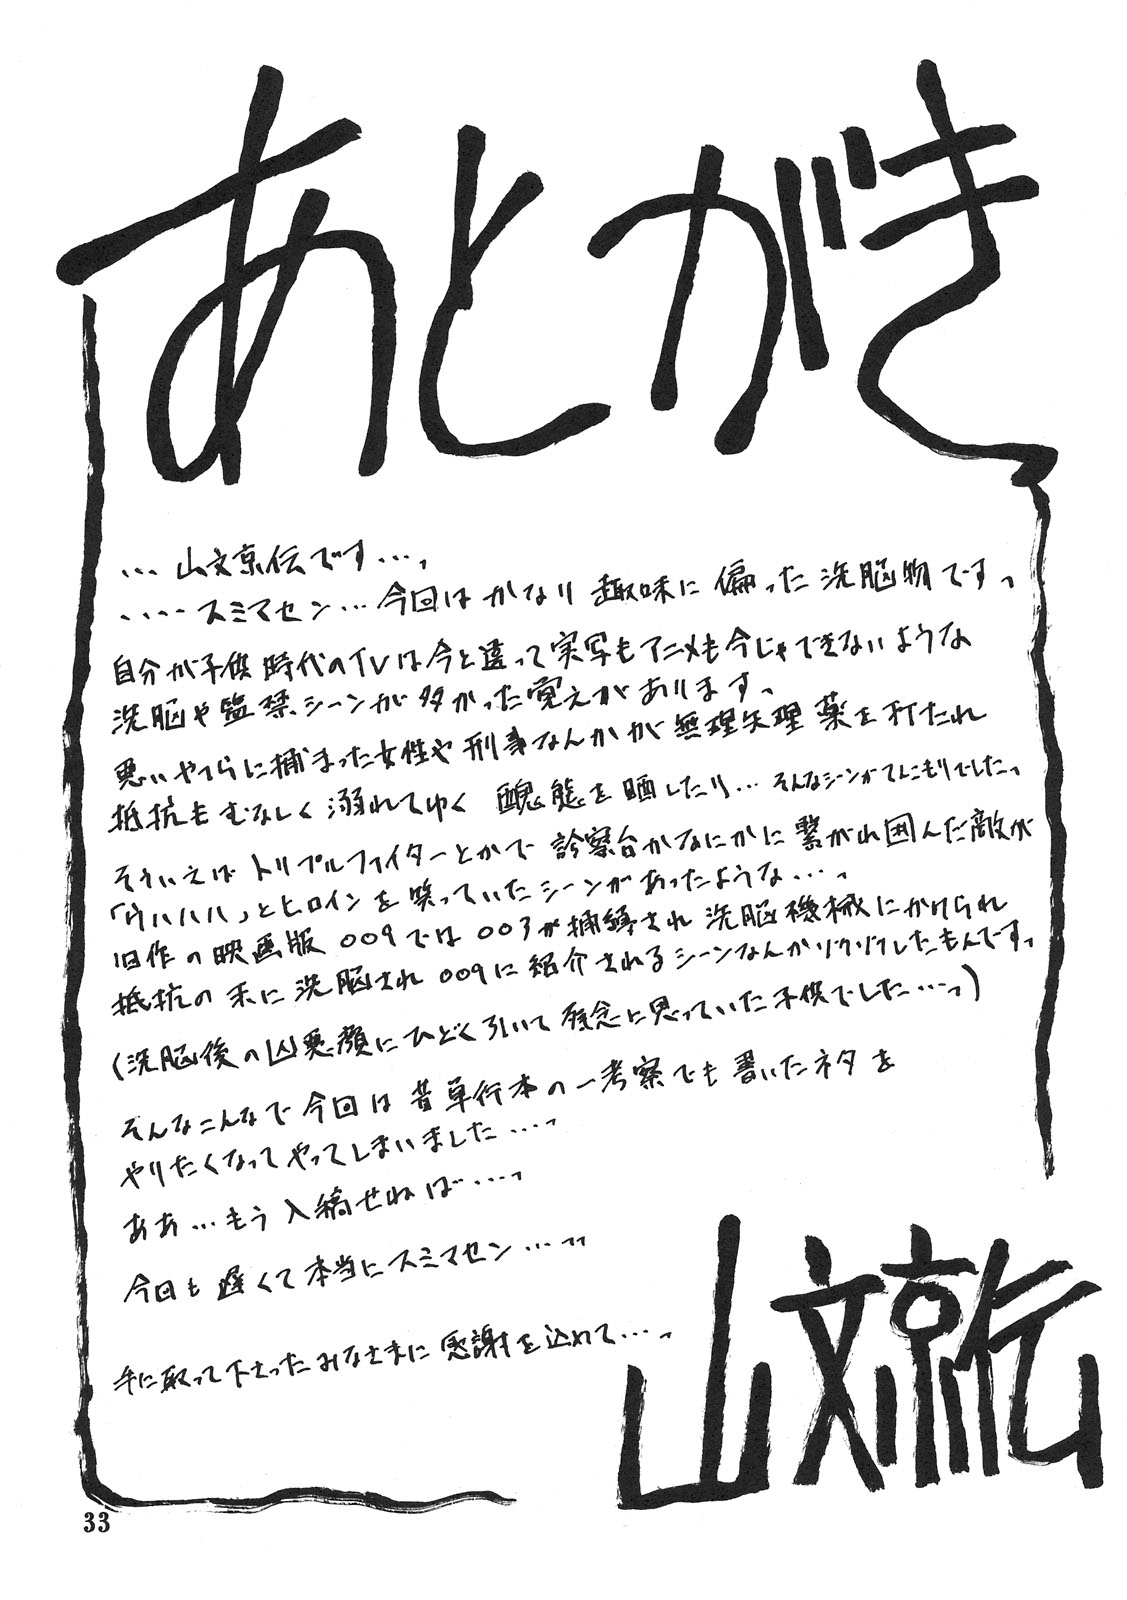 あとがき
…山文京伝です…。
‥‥スミマセン…今回はかなり趣味に偏った洗脳物です。
自分が子供時代のTVは今と違って実写もアニメも今じゃできないような
洗脳や監禁シーンが多かった覚えがあります。
悪いやつらに捕まった女性や刑事なんかが無理矢理薬を打たれ
抵抗もむなしく溺れてゆく醜態を晒したり…そんなシーンがてんこもりでしたっ
そういえばトリプルファイターとかで診察台かなにかに繋がれ囲んだ敵が
「ウハハハ」とヒロインを笑っていたシーンがあったような…。
旧作の映画版009では003が捕縛され洗脳機械にかけられ
抵抗の末に洗脳され009に紹介されるシーンなんかゾクゾクしたもんですっ
(洗脳後の凶悪顔にひどく引いて残念に思っていた子供でした…っ)
そんなこんなで今回は昔単行本の一考察でも書いたネタを
やりたくなってやってしまいました…っ
ああ…もう入稿せねば…っ
今回も遅くて本当にスミマセン…っっ
手に取って下さったみなさまに感謝を込めて…っ
山文京伝
33